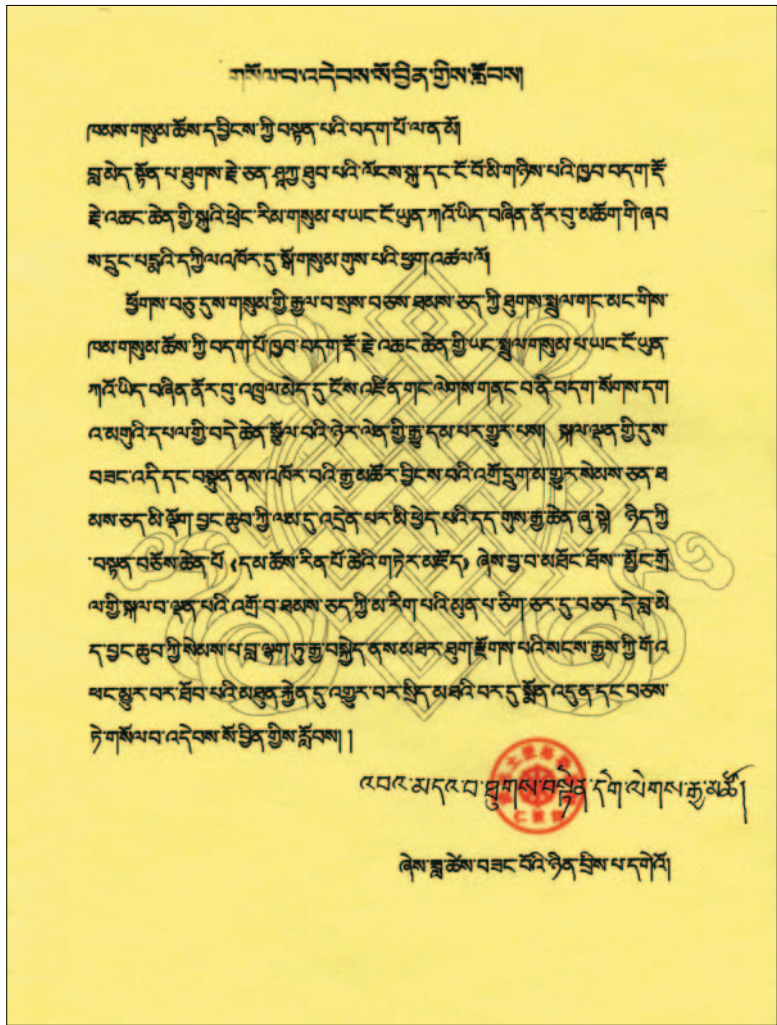 གསོལ་བ་འདེབས་སོ་བྱིན་གྱིས་རློབས།
ཁམས་གསུམ་ཆོས་དབྱིངས་ཀྱི་བསྟན་པའི་བདག་པོ་ལ་ན་མོ།
བླ་མེད་སྟོན་པ་ཐུགས་རྗེ་ཅན་ཤཱཀྱ་ཐུབ་པའི་ལོངས་སྐུ་དང་ངོ་བོ་མི་གཉིས་པའི་ཁྱབ་བདག་རྡོ
རྗེ་འཆང་ཆེན་གྱི་སྐུའི་ཕྲེང་རིམ་གསུམ་པ་ཡང་ངོ་ཡུན་ཀའོ་ཡིད་བཞིན་ནོར་བུ་མཆོག་གི་ཞབ
ས་དྲུང་པདྨའི་དཀྱིལ་འཁོར་དུ་སྒོ་གསུམ་གུས་པའི་ཕྱག་འཚལ་ལོ།
ཕྱོགས་བཅུ་དུས་གསུམ་གྱི་རྒྱལ་བ་སྲས་བཅས་ཐམས་ཅད་ཀྱི་ཐུགས་སྤྲུལ་གང་མང་གིས་
ཁམ་གསུམ་ཆོས་ཀྱི་བདག་པོ་ཁྱབ་བདག་རྡོ་རྗེ་འཆང་ཆེན་གྱི་ཡང་སྤྲུལ་གསུམ་པ་ཡང་ངོ་ཡུན་
ཀའོ་ཡིད་བཞིན་ནོར་བུ་འཁྲུལ་མེད་དུ་ངོས་འཛིན་གང་ལེགས་གནང་བ་ནི་བདག་སོགས་དག
འ་མགུའི་དཔལ་གྱི་བདེ་ཆེན་སྩོལ་བའི་ཉེར་ལེན་གྱི་རྒྱུ་དམ་པར་གྱུར་པས། སྐལ་ལྡན་གྱི་དུས་
བཟང་འདི་དང་བསྟུན་ནས་འཁོར་བའི་རྒྱ་མཚོར་བྱིངས་བའི་འགྲོ་དྲུག་མ་གྱུར་སེམས་ཅན་ཐ
མས་ཅད་མི་ལྡོག་བྱང་ཆུབ་ཀྱི་ལམ་དུ་འདྲེན་པར་མི་ཕྱེད་པའི་དད་གུས་རྒྱ་ཆེན་ཞུ་སྟེ། ཉིད་ཀྱི
་བསྟན་བཅོས་ཆེན་པོ《དམ་ཆོས་རིན་པོ་ཆེའི་གཏེར་མཛོད》ཞེས་བྱ་བ་མཐོང་ཐོས་མྱོང་གྲོ
ལ་གྱི་སྐལ་བ་ལྡན་པའི་འགྲོ་བ་ཐམས་ཅད་ཀྱི་མ་རིག་པའི་མུན་པ་ཅིག་ཅར་དུ་བཅད་དེ་བླ་མེ
ད་བྱང་ཆུབ་ཀྱི་སེམས་པ་བླ་ལྷག་ཏུ་རྒྱ་བསྐྱེད་ནས་མཐར་ཐུག་རྫོགས་པའི་སངས་རྒྱས་ཀྱི་གོ་འ
ཕང་མྱུར་བར་ཐོབ་པའི་མཐུན་རྐྱེན་དུ་འགྱུར་བར་སྲིད་མཐའི་བར་དུ་སྨོན་འདུན་དང་བཅས་
ཏེ་གསོལ་བ་འདེབས་སོ་བྱིན་གྱིས་རློབས།།
འབའ་མདའ་བ་ཐུགས་བསྟེན་དགེ་ལེགས་རྒྱ་མཚོ།
ཞེས་ཟླ་ཚེས་བཟང་བོའི་ཉིན་བྲིས་པ་དགེའོ།